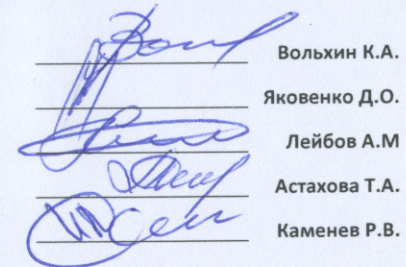 Вольхин К.А.
Яковенко Д.О.
Лейбов А.М
Астахова Т.А.
Каменев Р.В.